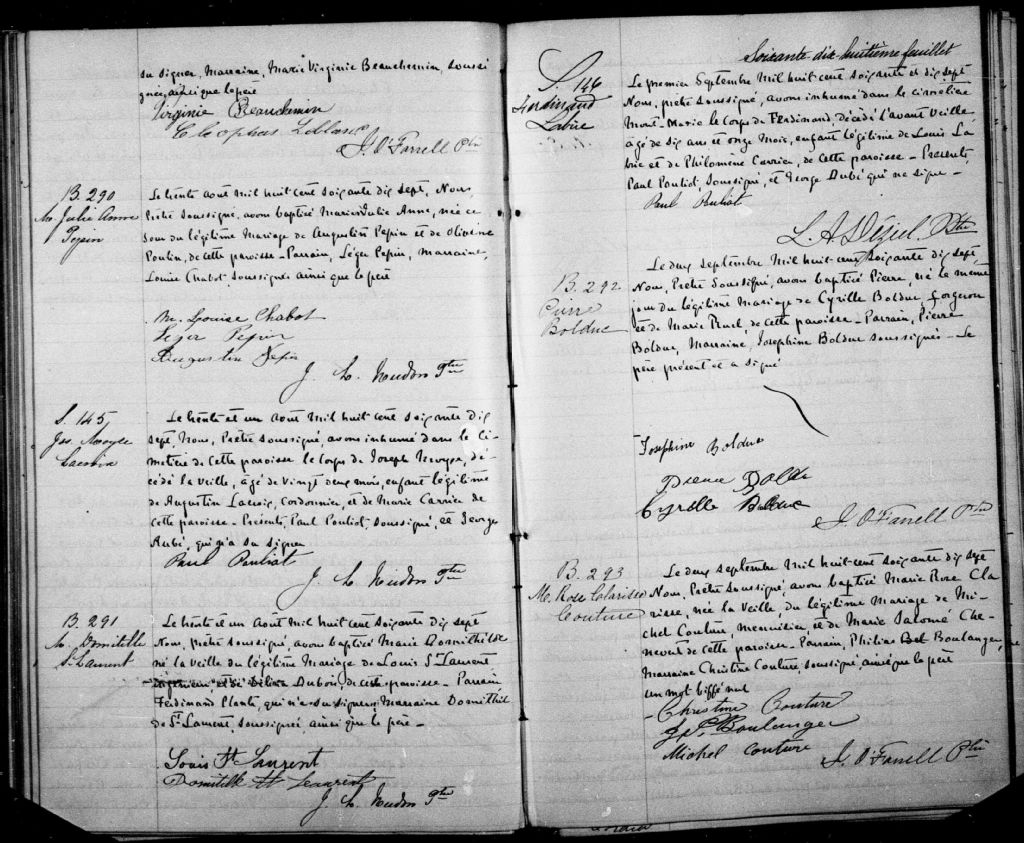 su signer, Marraine, Marie Virginie Beauchemin, soussi
gnée, ainsi que le père
Virginie Beauchemin
Cleophas Leblanc
J. O'Farrell Ptre
B. 290
M. Julie Anne
Pepin
Le trente aout Mil huit cent soixante dix sept, Nous,
Prêtre soussigné, avons baptisé Marie Julie Anne, née ce
jour du légitime Mariage de Augustin Pepin et de
Poulin, de cette paroisse - Parrain, Léger Pepin, Marraine,
Louise Chabot, soussignés ainsi que le père
M. Louise Chabot
Léger Pepin
Augustin Pepin
Ptre
S. 145
Jos.
Lacroix
Le trente et un Aout Mil huit cent soixante dix
sept, Nous, Prêtre soussigné, avons inhumé dans le Ci-
metière de cette paroisse le corps de Joseph dé-
cédé la veille, âgé de vingt deux mois, enfant légitime
de Augustin Lacroix, Cordonnier, et de Marie Carrier de
cette paroisse - Présents, Paul Pouliot, soussigné, et Georges
Dubé, qui n'a su signer
Paul Pouliot
Ptre
B. 291
M. Domitille
St Laurent
Le trente et un Aout Mil huit cent soixante dix sept
Nous, prêtre soussigné, avons baptisé Marie Domithilde
né la veille du légitime Mariage de Louis St Laurent
et de Délina Dubois, de cette paroisse - Parrain
Ferdinand Plante, qui n'a su signer, Marraine Domithil
de St Laurent, soussignée ainsi que le père -
Louis St Laurent
Domitille St Laurent
Ptre
Soixante dix huitième feuillet
S. 146
Ferdinand
Labrie
Le premier Septembre Mil huit cent soixante et dix sept
Nous, prêtre soussigné, avons inhumé dans le cimetière
Mont-Marie le Corps de Ferdinand, décédé l'avant veille,
âgé de six ans et onze Mois, enfant légitime de Louis La
brie et de Philomène Carrier, de cette paroisse - Présents,
Paul Pouliot, soussigné, et George Dubé qui ne signe -
Paul Pouliot
L. A. Déziel Ptre
B. 292
Pierre
Bolduc
Le deux septembre Mil huit cent soixante dix sept,
Nous, Prêtre soussigné, avons baptisé Pierre, né le même
jour du légitime Mariage de Cyrille Bolduc, forgeron
et de Marie de cette paroisse - Parrain, Pierre
Bolduc, Marraine, Josephine Bolduc soussignés - Le
père présent et a signé
Josephine Bolduc
Pierre Bolduc
Cyrille Bolduc
J. O'Farrell Ptre
B. 293
M. Rose Clarisse
Couture
Le deux septembre Mil huit cent soixante dix sept
Nous, Prêtre soussigné, avons baptisé Marie Rose Cla
risse, née la veille du légitime Mariage de Mi-
chel Couture, menuisier, et de Marie Salomé Che-
nevert de cette paroisse - Parrain, Philias Bel Boulanger,
Marraine Christine Couture, soussignés, ainsi que le père
un mot biffé nul
Christine Couture
Boulanger
Michel Couture
J. O'Farrell Ptre